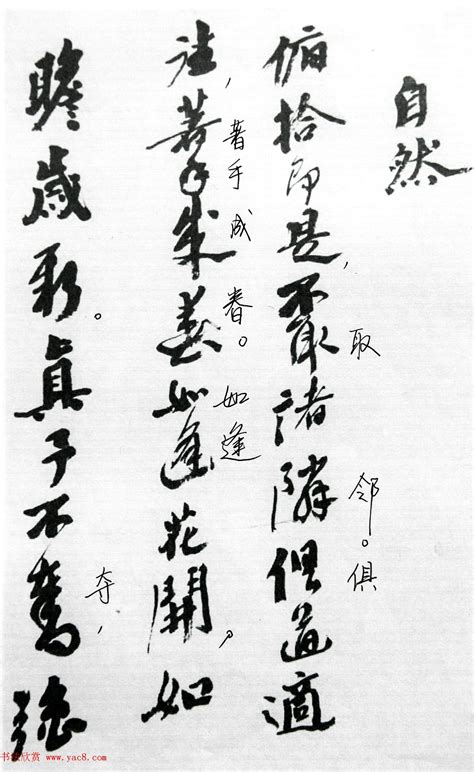 自然
俯拾即是，不取諸隣俱道適
取邻。俱
往，著手成春。如逢花開，如
著手成春如逢
瞻歲新。真予不奪強
夺，
书法欣赏 www.yac8.com